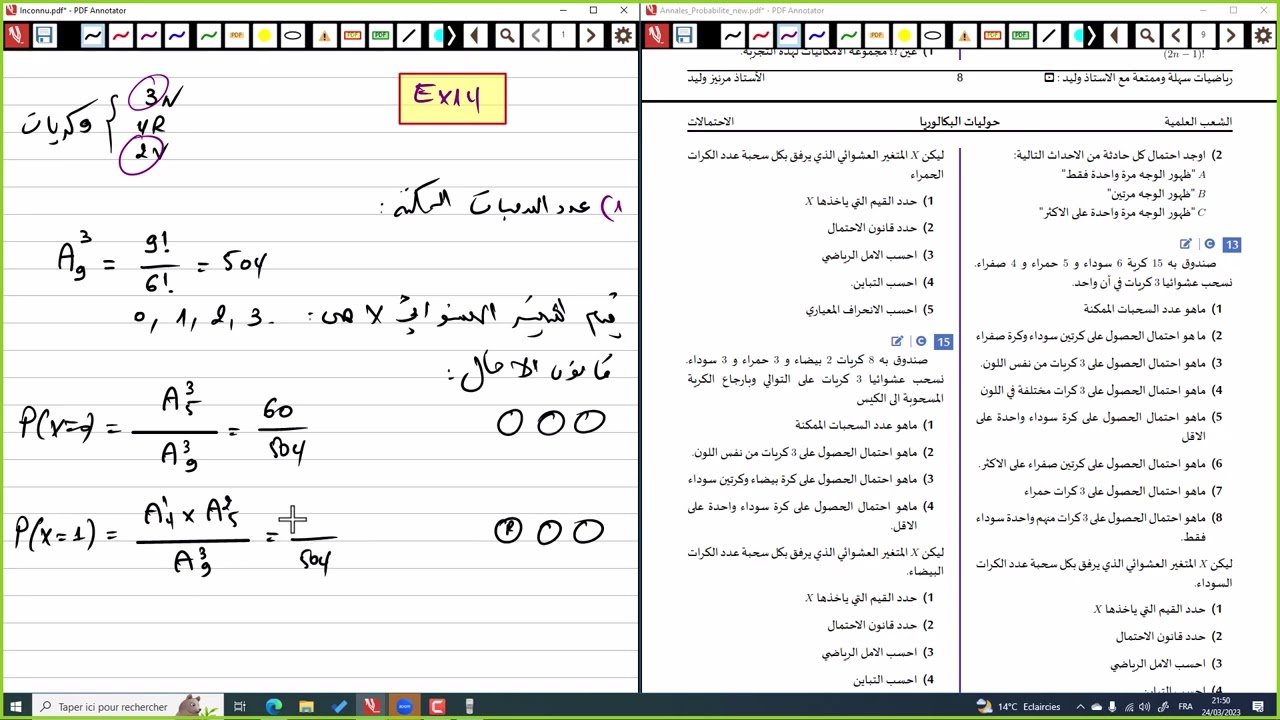 Inconnu.pdf* - PDF Annotator
1
Ex14
9 كريات
3N
4R
2V
1) عدد السحبات الممكنة :
A₉³ = 9!/6! = 504
قيم المتغير العشوائي X هي : 0, 1, 2, 3.
قانون الاحتمال :
P(x=0) = A₅³/A₉³ = 60/504
P(x=1) = A₄¹ × A₅²/A₉³ = /504
R
Annales_Probabilite_new.pdf* - PDF Annotator
9
1) عين Ω مجموعة الامكانيات لهذه التجربة.
(2n − 1)!
رياضيات سهلة وممتعة مع الاستاذ وليد :
8
الأستاذ مرنيز وليد
الشعب العلمية
حوليات البكالوريا
الاحتمالات
2) اوجد احتمال كل حادثة من الاحداث التالية:
A "ظهور الوجه مرة واحدة فقط"
B "ظهور الوجه مرتين"
C "ظهور الوجه مرة واحدة على الاكثر"
13
صندوق به 15 كرية 6 سوداء و 5 حمراء و 4 صفراء.
نسحب عشوائيا 3 كريات في آن واحد.
1) ماهو عدد السحبات الممكنة
2) ما هو احتمال الحصول على كرتين سوداء وكرة صفراء
3) ماهو احتمال الحصول على 3 كريات من نفس اللون.
4) ماهو احتمال الحصول على 3 كرات مختلفة في اللون
5) ماهو احتمال الحصول على كرة سوداء واحدة على
الاقل
6) ماهو احتمال الحصول على كرتين صفراء على الاكثر.
7) ماهو احتمال الحصول على 3 كرات حمراء
8) ماهو احتمال الحصول على 3 كرات منهم واحدة سوداء
فقط.
ليكن X المتغير العشوائي الذي يرفق بكل سحبة عدد الكرات
السوداء.
1) حدد القيم التي ياخذها X
2) حدد قانون الاحتمال
3) احسب الامل الرياضي
4) احسب التباين
ليكن X المتغير العشوائي الذي يرفق بكل سحبة عدد الكرات
الحمراء
1) حدد القيم التي ياخذها X
2) حدد قانون الاحتمال
3) احسب الامل الرياضي
4) احسب التباين.
5) احسب الانحراف المعياري
15
صندوق به 8 كريات 2 بيضاء و 3 حمراء و 3 سوداء.
نسحب عشوائيا 3 كريات على التوالي وبارجاع الكرية
المسحوبة الى الكيس
1) ماهو عدد السحبات الممكنة
2) ماهو احتمال الحصول على 3 كريات من نفس اللون.
3) ماهو احتمال الحصول على كرة بيضاء وكرتين سوداء
4) ماهو احتمال الحصول على كرة سوداء واحدة على
الاقل.
ليكن X المتغير العشوائي الذي يرفق بكل سحبة عدد الكرات
البيضاء.
1) حدد القيم التي ياخذها X
2) حدد قانون الاحتمال
3) احسب الامل الرياضي
4) احسب التباين
Taper ici pour rechercher
14°C Eclaircies
FRA
21:50
24/03/2023